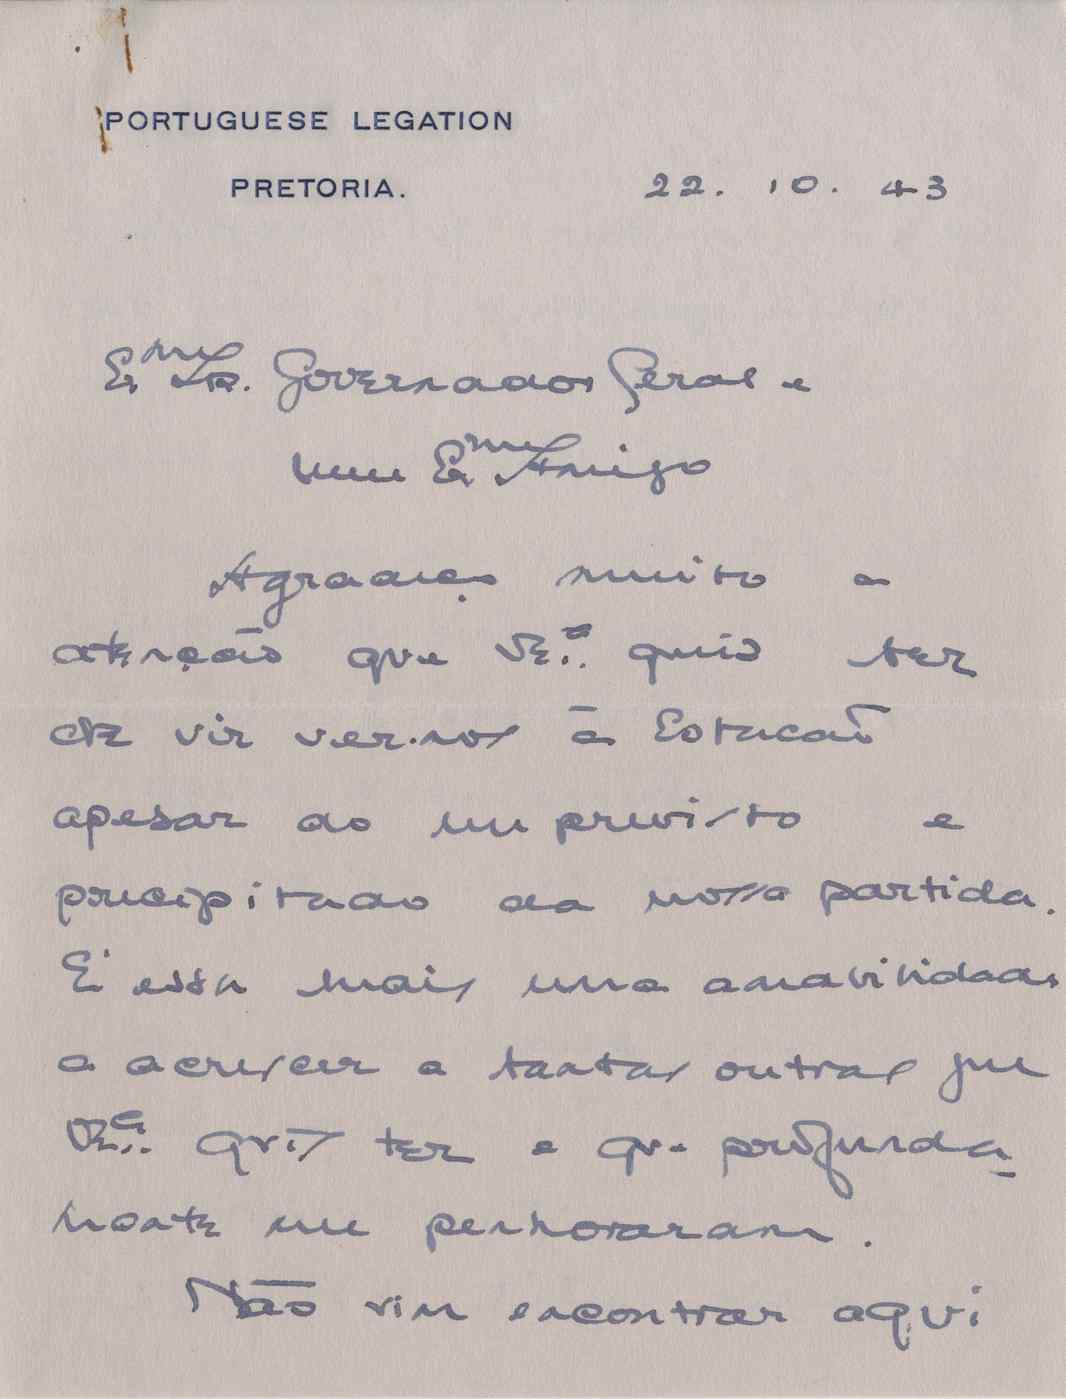 PORTUGUESE LEGATION
PRETORIA.
22. 10. 43
Exmo Sr. Governador Geral e
meu Exmo Amigo
Agradeço muito a
atenção que V Exa. quis ter
de vir ver-nos à Estação
apesar do imprevisto e
precipitado da nossa partida.
É essa mais uma amabilidade
a acrescer a tantas outras que
V Exa. quis ter e que profunda-
mente me penhoraram.
Não vim encontrar aqui